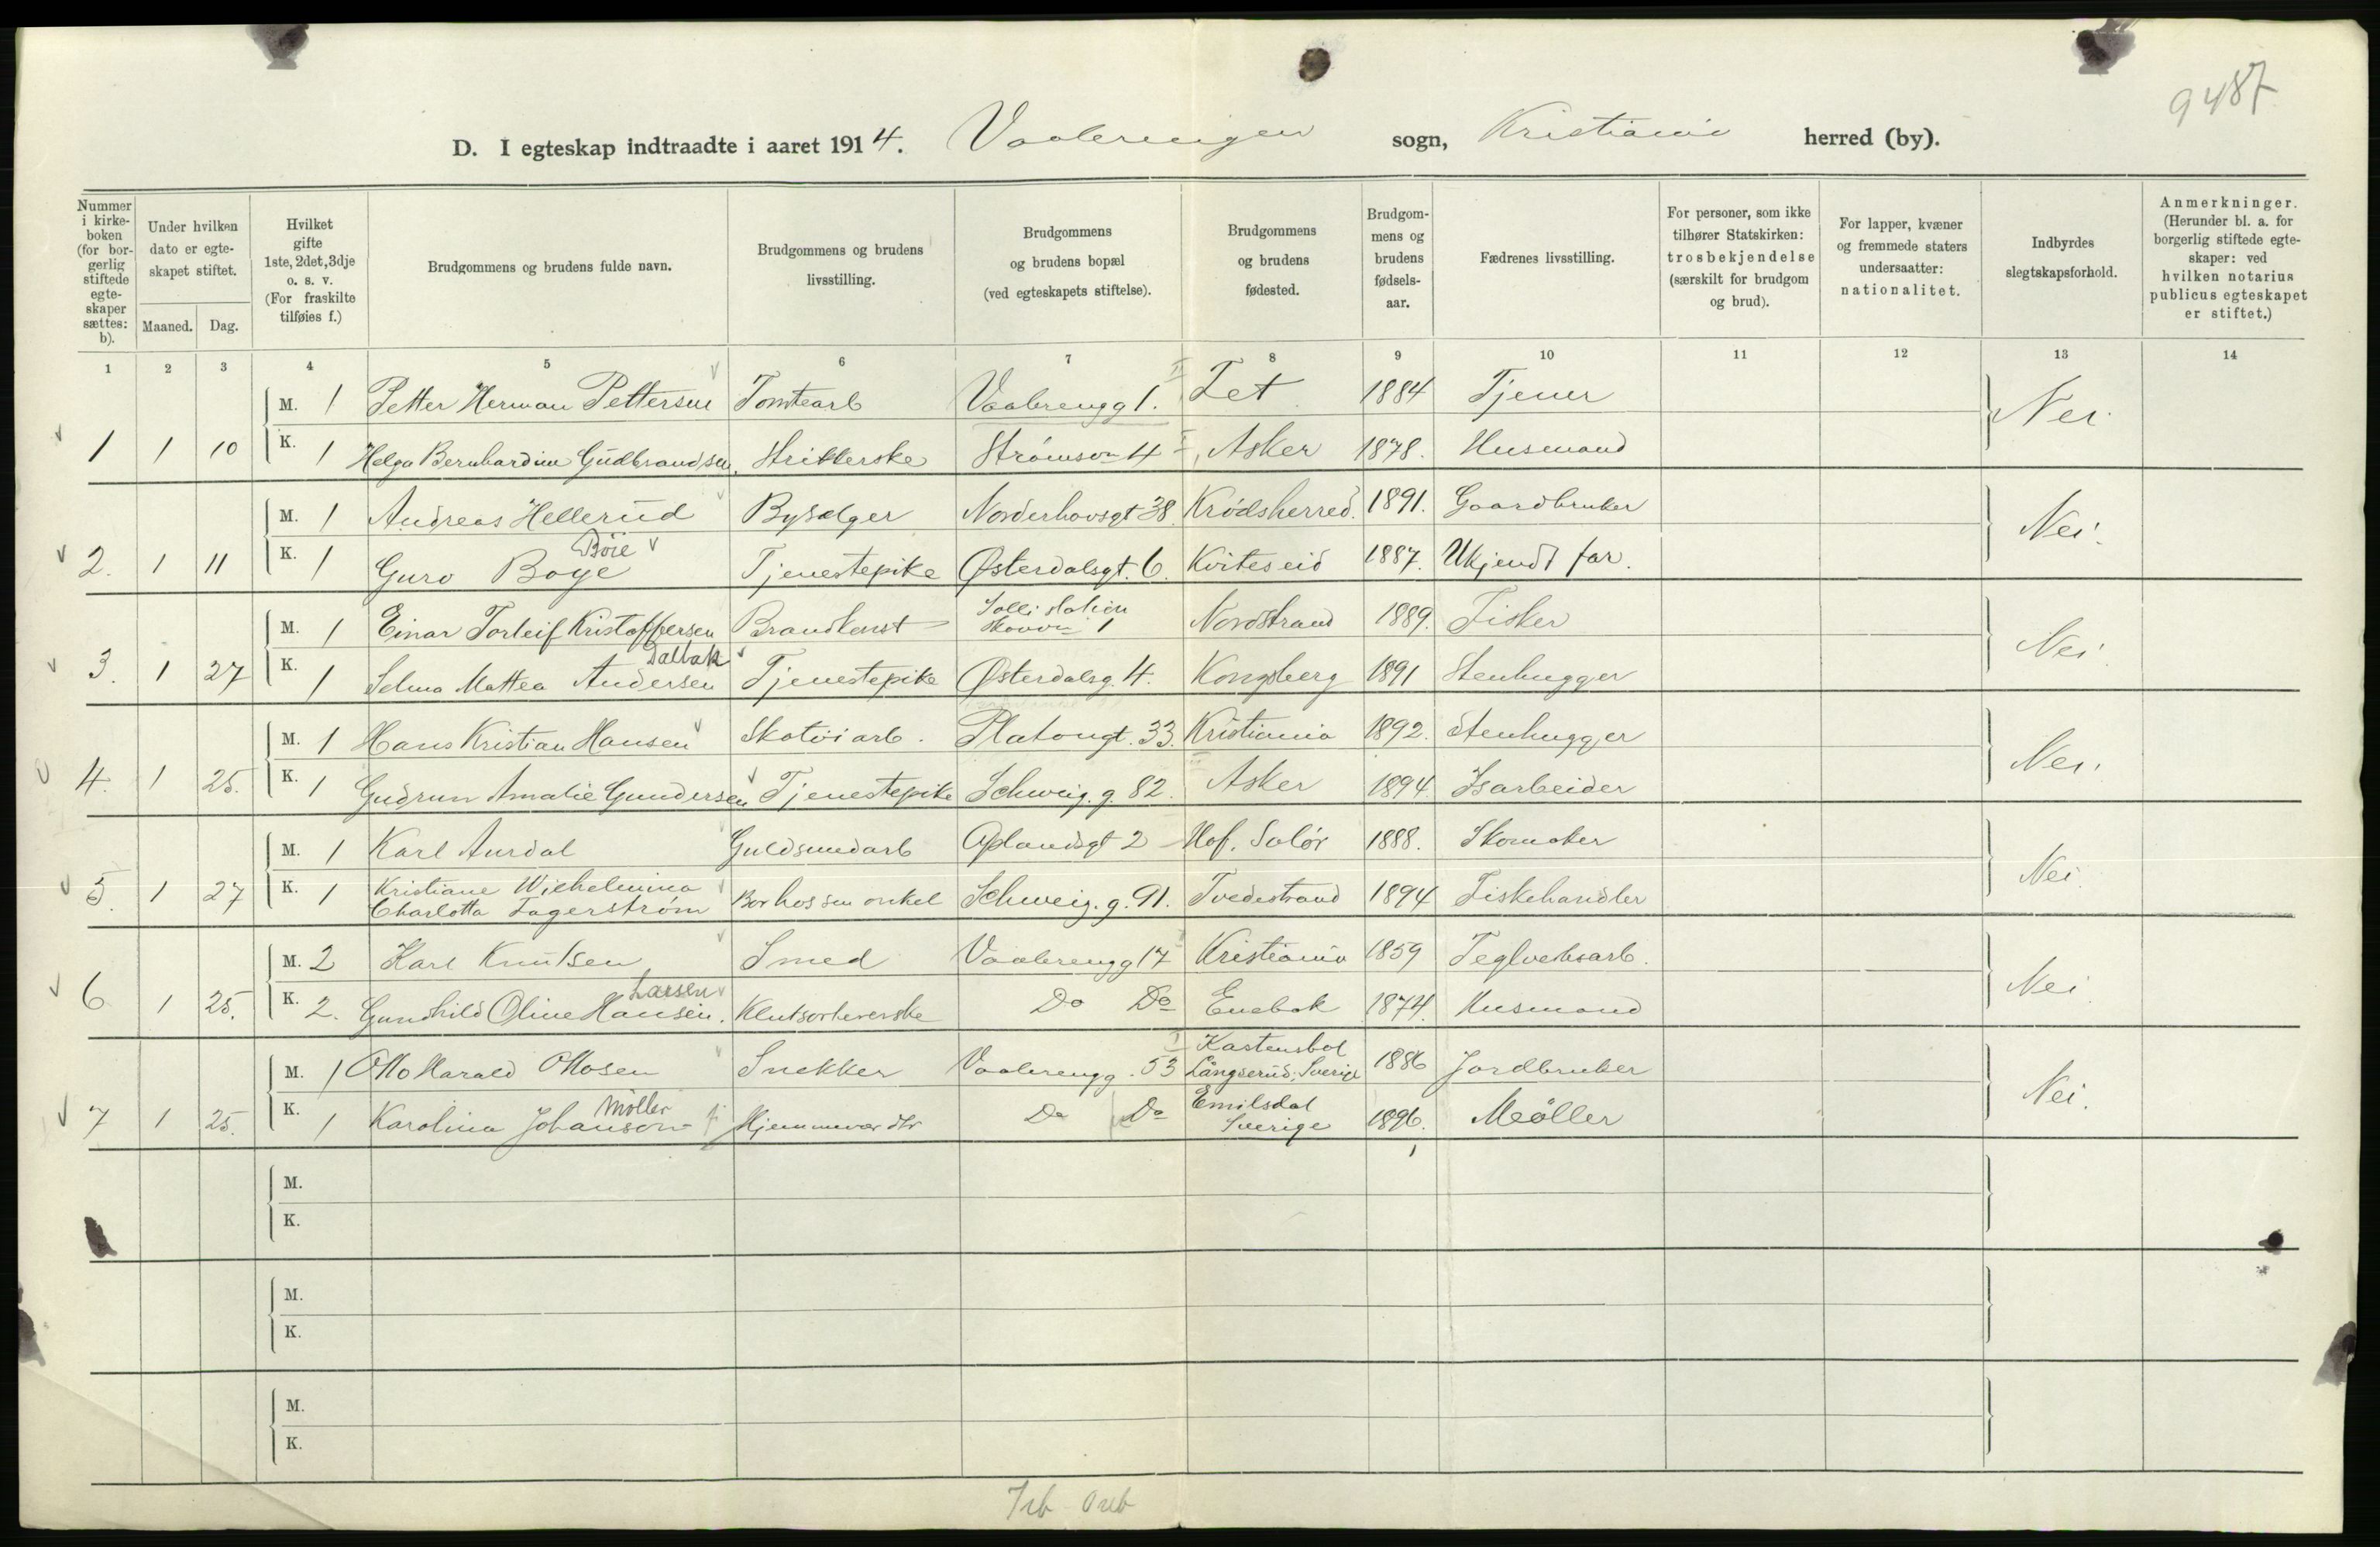 9487
D. I egteskap indtraadte i aaret 1914. Vaalerengen sogn, Kristiania herred (by).
Nummer i kirke-boken (for bor-gerlig stiftede egte-skaper sættes: b).
Under hvilken dato er egte-skapet stiftet.
Maaned. Dag.
Hvilket gifte 1ste, 2det, 3dje o. s. v. (For fraskilte tilføies f.)
Brudgommens og brudens fulde navn.
Brudgommens og brudens livsstilling.
Brudgommens og brudens bopæl (ved egteskapets stiftelse).
Brudgommens og brudens fødested.
Brudgom-mens og brudens fødsels-aar.
Fædrenes livsstilling.
For personer, som ikke tilhører Statskirken: trosbekjendelse (særskilt for brudgom og brud).
For lapper, kvæner og fremmede staters undersaatter: nationalitet.
Indbyrdes slegtskapsforhold.
Anmerkninger. (Herunder bl. a. for borgerlig stiftede egte-skaper: ved hvilken notarius publicus egteskapet er stiftet.)
1 2 3 4 5 6 7 8 9 10 11 12 13 14
M. 1 Petter Herman Pettersen Tomtearb Vaalerengg 1. Fet 1884 Tjener Nei
1 1 10 K. 1 Helga Bernhardine Gudbrandsen Strikkerske Strømsvn 4 Asker 1878. Husmand
M. 1 Andreas Hellerud Bysælger Norderhovsgt 38. Krødsherred. 1891. Gaardbruker Nei.
Böie
2. 1 11 K. 1 Guro Boye Tjenestepike Østerdalsgt. 6. Kviteseid 1887. Ukjendt far.
Solli station
M. 1 Einar Torleif Kristoffersen Brandkonst 1 Nordstrand 1889. Fisker Nei
Dalbak
3. 1 27 K. 1 Selma Mattea Andersen Tjenestepike Østerdalsg. 4. Kongsberg 1891 Stenhugger
M. 1 Hans Kristian Hansen Skotöiarb. Platougt. 33. Kristiania 1892. Stenhugger Nei.
4. 1 25. K. 1 Gudrun Amalie Gundersen Tjenestepike Schweig. g. 82. Asker 1894. Isarbeider
M. 1 Karl Aurdal Guldsmedarb Oplandsgt 2 Hof, Solör 1888. Skomaker Nei.
5. 1 27 K. 1 Kristiane Wilhelmina
Charlotta Fagerström Bor hos sin onkel Schweig. g. 91. Tvedestrand 1894 Fiskehandler
M. 2 Karl Knutsen Smed Vaalerengg 17 Kristiania 1859 Teglverksarb. Nei
Larsen
6 1 25. K. 2. Gunhild Oline Hansen. Klutsortererske Do Do Enebak 1874. Husmand
Kastensbol
M. 1 Otto Harald Ottosen Snekker Vaalerengg. 53 Långserud, Sverige 1886 Jordbruker Nei.
Möller Emilsdal
7 1 25. K. 1 Karolina Johanson Hjemmevær. dtr Do Do Sverige 1896. Meöller
M.
K.
M.
K.
M.
K.